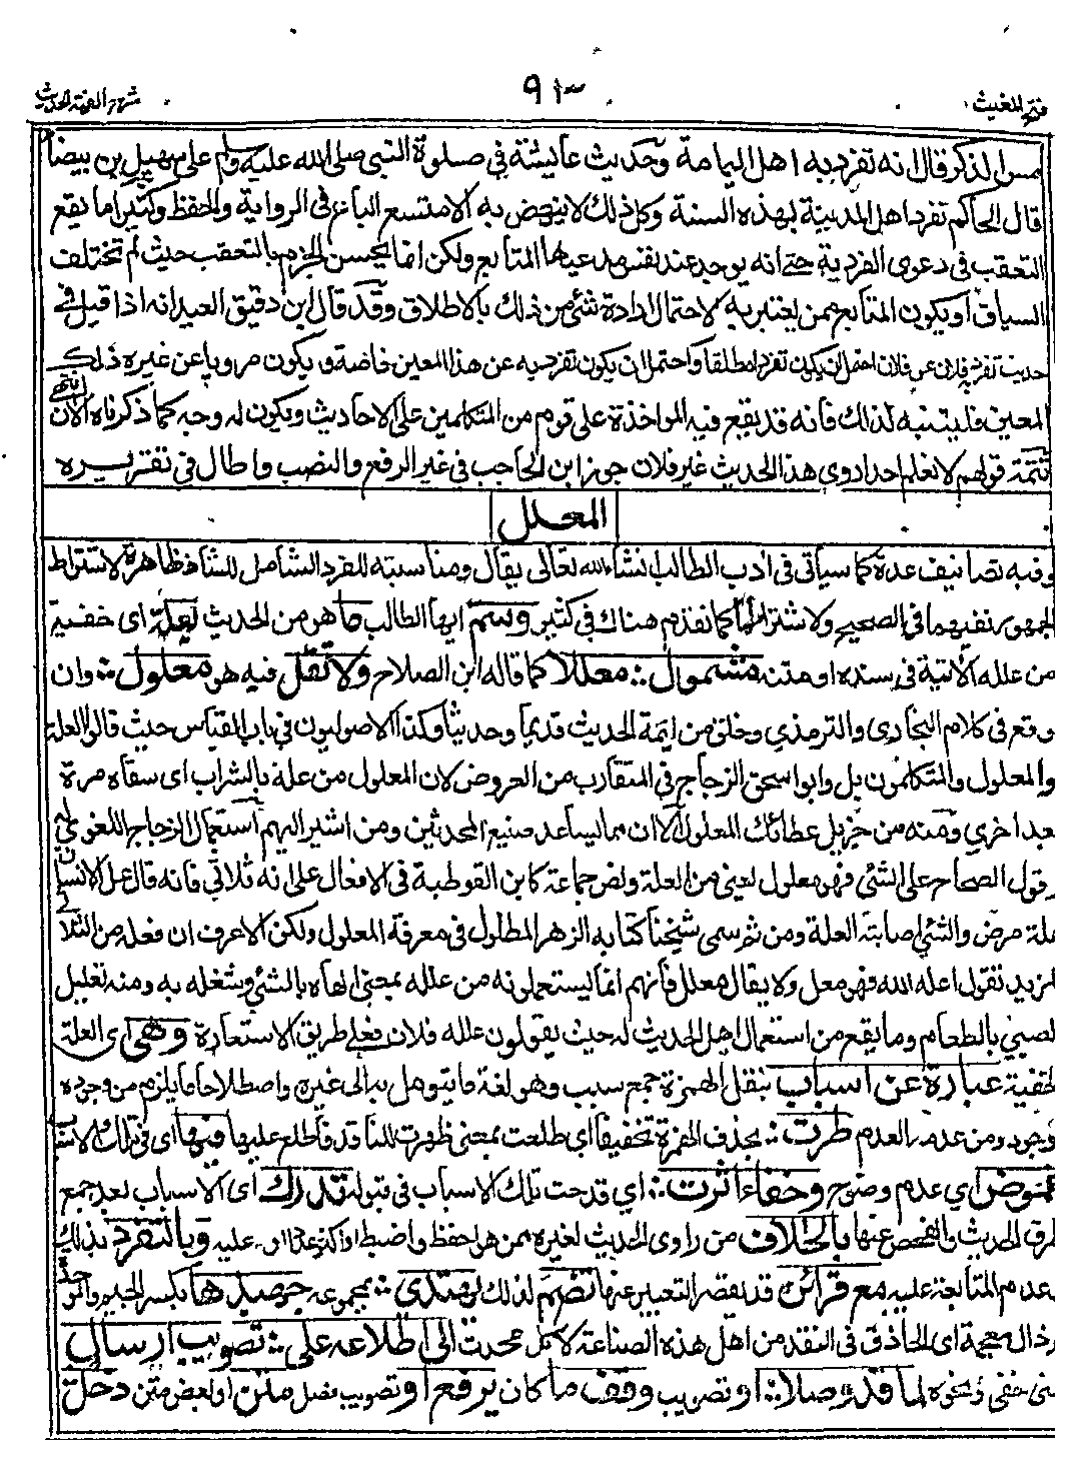 فتح المغيث ٩٣ شرح الفية الحديث
الذكر قال انه تفرد به اهل اليمامة وحديث عائشة في صلوة النبي صلى الله عليه وسلم على سهيل بن بيضاء
قال الحاكم تفرد اهل المدينة بهذه السنة وكل ذلك لا ينهض به الا متسع الباع في الرواية والحفظ وكثيرا ما يقع
التعقب في دعوى الفردية حتى انه يوجد عند نفس مدعيها المتابع ولكن انما يحسن الجزم بالتعقب حيث لم تختلف
السياق او يكون المتابع ممن يعتبر به لاحتمال ارادة شئ من ذلك بالاطلاق وقد قال ابن دقيق العيد انه اذا قيل في
حديث تفرد به فلان عن فلان احتمل ان يكون تفردا مطلقا واحتمل ان يكون تفرد به عن هذا المعين خاصة ويكون مرويا عن غير ذلك
المعين فليتنبه لذلك فانه قد يقع فيه المواخذة على قوم من المتكلمين على الاحاديث ويكون له وجه كما ذكرناه الآن انتهى
تتمة قولهم لا نعلم احدا روى هذا الحديث غير فلان جوز ابن الحاجب في غير الرفع والنصب واطال في تقريره
المعلل
وفيه تصانيف عدة كما سيأتى في ادب الطالب انشاء الله تعالى يقال ومناسبته للفرد الشامل للشاذ ظاهرة لاشتراط
الجمهور نفيهما في الصحيح ولاشتراكهما كما تقدم هناك في كثير وسم ايها الطالب ما هو من الحديث بعلة اى خفية
من علله الآتية في سنده او متنه مشمول ∴ معللا كما قاله ابن الصلاح ولا تقل فيه هو معلول ∴ وان
وقع في كلام البخارى والترمذى وخلق من ائمة الحديث قديما وحديثا وكذا الاصوليون في باب القياس حيث قالوا العلة
والمعلول والمتكلمون بل وابو اسحق الزجاج في المتقارب من العروض لان المعلول من عله بالشراب اى سقاه مرة
بعد اخرى ومنه من جزيل عطائك المعلول الا ان مما يساعد صنيع المحدثين ومن اشير اليهم استعمال الزجاج اللغوى له
وقول الصحاح عل الشئ فهو معلول يعني من العلة ونص جماعة كابن القوطية في الافعال على انه ثلاثي فانه قال عل الانسان
علة مرض والشئ اصابته العلة ومن ثم سمى شيخنا كتابه الزهر المطلول في معرفة المعلول ولكن الاعرف ان فعله من الثلاثي
المزيد تقول اعله الله فهو معل ولا يقال معلل فانهم انما يستعملونه من علله بمعنى الهاه بالشئ وشغله به ومنه تعليل
الصبي بالطعام وما يقع من استعمال اهل الحديث له حيث يقولون علله فلان فعلى طريق الاستعارة وهى اى العلة
الخفية عبارة عن اسباب بنقل الهمزة جمع سبب وهو لغة ما يتوصل به الى غيره واصطلاحا ما يلزم من وجوده
الوجود ومن عدمه العدم طرت ∴ بحذف الهمزة تخفيفا اى طلعت بمعنى ظهرت للناقد فاطلع عليها فيها اى في تلك الاسباب
غموض اي عدم وضوح وخفاء اثرت ∴ اي قدحت تلك الاسباب في قبوله تدرك اى الاسباب بعد جمع
طرق الحديث والفحص عنها بالخلاف من راوى الحديث لغيره ممن هو احفظ واضبط او اكثر عددا او عليه وبالتفرد بذلك
بعدم المتابعة عليه مع قرائن قد يقصر التعبير عنها تضم لذلك يهتدى ∴ بمجموعه جهبذها بكسر الجيم والموحدة
وذال معجمة اى الحاذق في النقد من اهل هذه الصناعة لا كل محدث الى اطلاعه على ∴ تصويب ارسال
يعني خفى ونحوه لما قد وصلا ∴ او تصويب وقف ما كان يرفع او تصويب فصل متن او بعض متن دخل